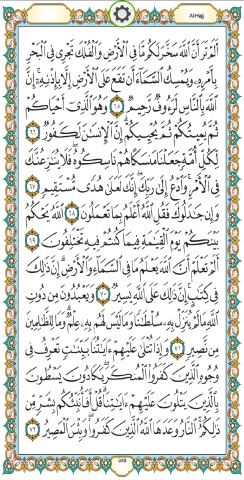 Al-Hajj
أَلَمْ تَرَ أَنَّ ٱللَّهَ سَخَّرَ لَكُم مَّا فِى ٱلْأَرْضِ وَٱلْفُلْكَ تَجْرِى فِى ٱلْبَحْرِ
بِأَمْرِهِۦ وَيُمْسِكُ ٱلسَّمَآءَ أَن تَقَعَ عَلَى ٱلْأَرْضِ إِلَّا بِإِذْنِهِۦٓ ۗ إِنَّ
ٱللَّهَ بِٱلنَّاسِ لَرَءُوفٌ رَّحِيمٌ ٦٥ وَهُوَ ٱلَّذِىٓ أَحْيَاكُمْ
ثُمَّ يُمِيتُكُمْ ثُمَّ يُحْيِيكُمْ ۗ إِنَّ ٱلْإِنسَٰنَ لَكَفُورٌ ٦٦
لِّكُلِّ أُمَّةٍ جَعَلْنَا مَنسَكًا هُمْ نَاسِكُوهُ ۖ فَلَا يُنَٰزِعُنَّكَ
فِى ٱلْأَمْرِ ۚ وَٱدْعُ إِلَىٰ رَبِّكَ ۖ إِنَّكَ لَعَلَىٰ هُدًى مُّسْتَقِيمٍ ٦٧
وَإِن جَٰدَلُوكَ فَقُلِ ٱللَّهُ أَعْلَمُ بِمَا تَعْمَلُونَ ٦٨ ٱللَّهُ يَحْكُمُ
بَيْنَكُمْ يَوْمَ ٱلْقِيَٰمَةِ فِيمَا كُنتُمْ فِيهِ تَخْتَلِفُونَ ٦٩
أَلَمْ تَعْلَمْ أَنَّ ٱللَّهَ يَعْلَمُ مَا فِى ٱلسَّمَآءِ وَٱلْأَرْضِ ۗ إِنَّ ذَٰلِكَ
فِى كِتَٰبٍ ۚ إِنَّ ذَٰلِكَ عَلَى ٱللَّهِ يَسِيرٌ ٧٠ وَيَعْبُدُونَ مِن دُونِ
ٱللَّهِ مَا لَمْ يُنَزِّلْ بِهِۦ سُلْطَٰنًا وَمَا لَيْسَ لَهُم بِهِۦ عِلْمٌ ۗ وَمَا لِلظَّٰلِمِينَ
مِن نَّصِيرٍ ٧١ وَإِذَا تُتْلَىٰ عَلَيْهِمْ ءَايَٰتُنَا بَيِّنَٰتٍ تَعْرِفُ فِى
وُجُوهِ ٱلَّذِينَ كَفَرُوا۟ ٱلْمُنكَرَ ۖ يَكَادُونَ يَسْطُونَ
بِٱلَّذِينَ يَتْلُونَ عَلَيْهِمْ ءَايَٰتِنَا ۗ قُلْ أَفَأُنَبِّئُكُم بِشَرٍّ مِّن
ذَٰلِكُمُ ۗ ٱلنَّارُ وَعَدَهَا ٱللَّهُ ٱلَّذِينَ كَفَرُوا۟ ۖ وَبِئْسَ ٱلْمَصِيرُ ٧٢